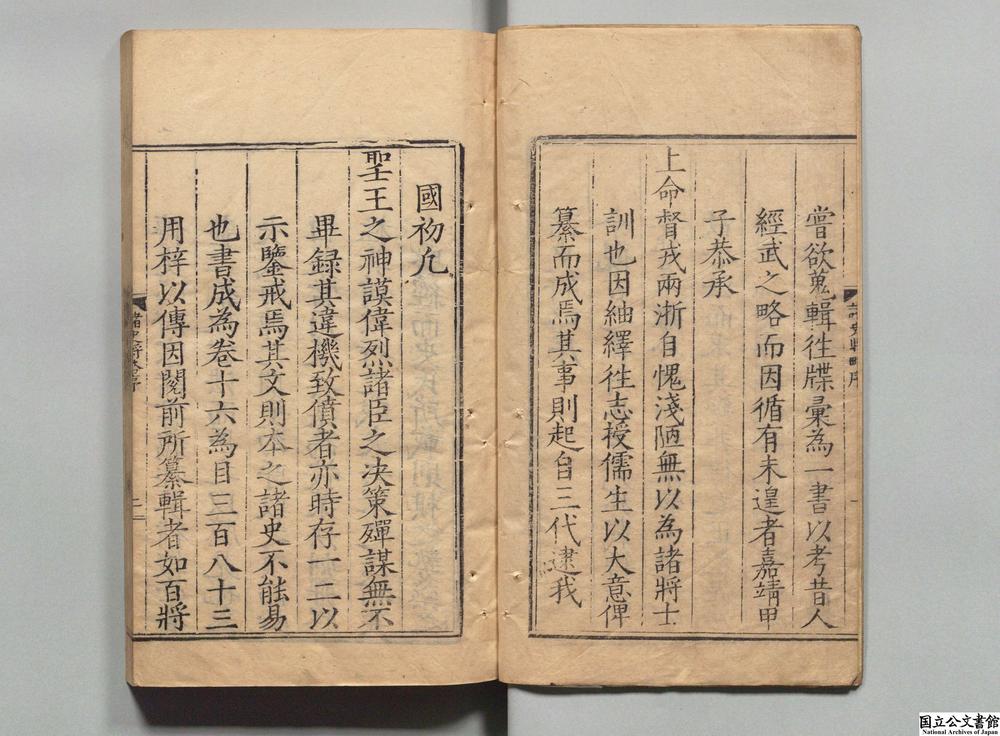 嘗欲蒐輯徃牒彙為一書以考昔人
經武之略而因循有未遑者嘉靖甲
子恭承
上命督戎兩浙自愧淺陋無以為諸將士
訓也因紬繹徃志授儒生以大意俾
纂而成焉其事則起自三代逮我
國初凢
聖王之神謨偉烈諸臣之決策殫謀無不
畢録其違機致僨者亦時存一二以
示鑒戒焉其文則本之諸史不能易
也書成為卷十六為目三百八十三
用梓以傳因閱前所纂輯者如百將
諸史將略序
國立公文書館
National Archives of Japan